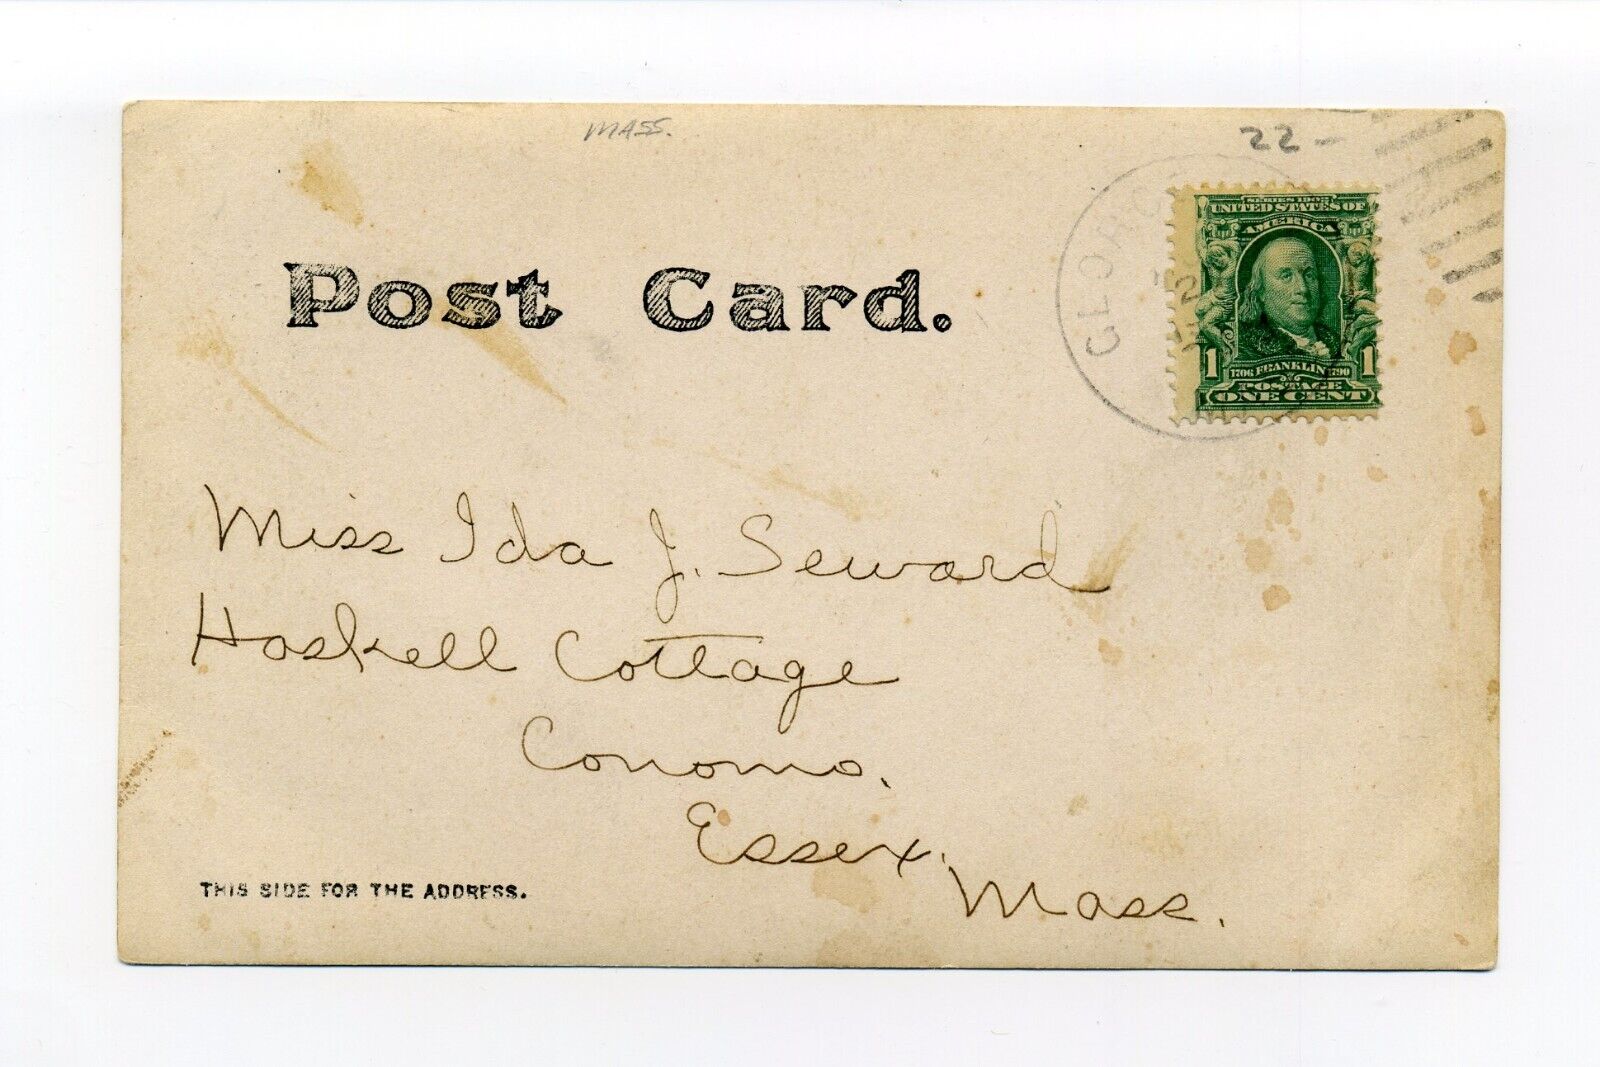 MASS.
22-
SERIES 1902
UNITED STATES OF
AMERICA
1 1706 FRANKLIN 1790 1
POSTAGE
ONE CENT
Post Card.
Miss Ida J. Seward
Haskell Cottage
Conomo.
Essex.
Mass.
THIS SIDE FOR THE ADDRESS.